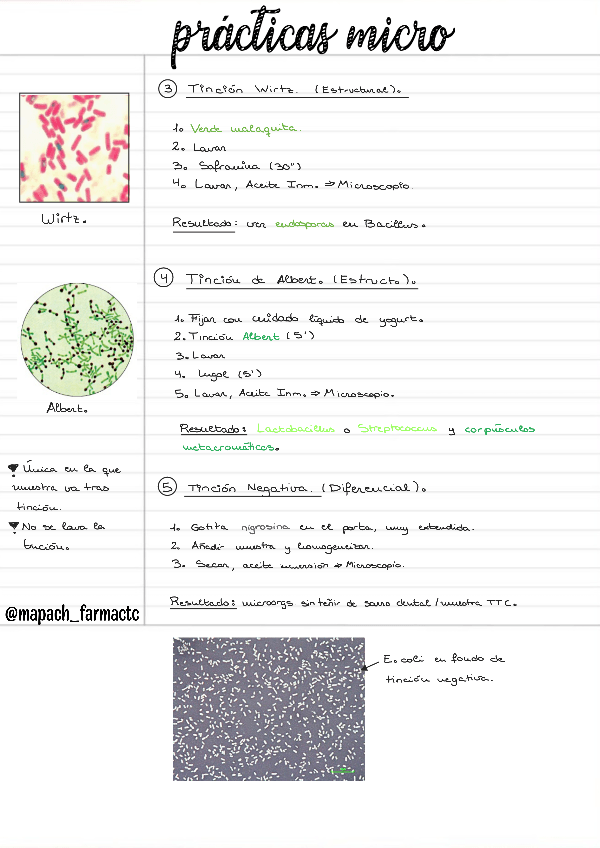 prácticas micro
3 Tinción Wirtz. (Estructural).
1. Verde malaquita.
2. Lavar
3. Safranina (30")
4. Lavar, Aceite Inm. ⇒ Microscopio.
Resultado: ver endosporas en Bacillus.
Wirtz.
4 Tinción de Albert. (Estruct.).
1. Fijar con cuidado líquido de yogurt.
2. Tinción Albert (5')
3. Lavar
4. Lugol (5')
5. Lavar, Aceite Inm. ⇒ Microscopio.
Resultado: Lactobacillus o Streptococcus y corpúsculos
metacromáticos.
Albert.
5 Tinción Negativa. (Diferencial).
1. Gotita nigrosina en el porta, muy extendida.
2. Añadir muestra y homogeneizar.
3. Secar, aceite inmersión ⇒ Microscopio.
Resultado: microorgs sin teñir de sarro dental / muestra TTC.
Única en la que
muestra va tras
tinción.
No se lava la
tinción.
@mapach_farmactc
E. coli en fondo de
tinción negativa.